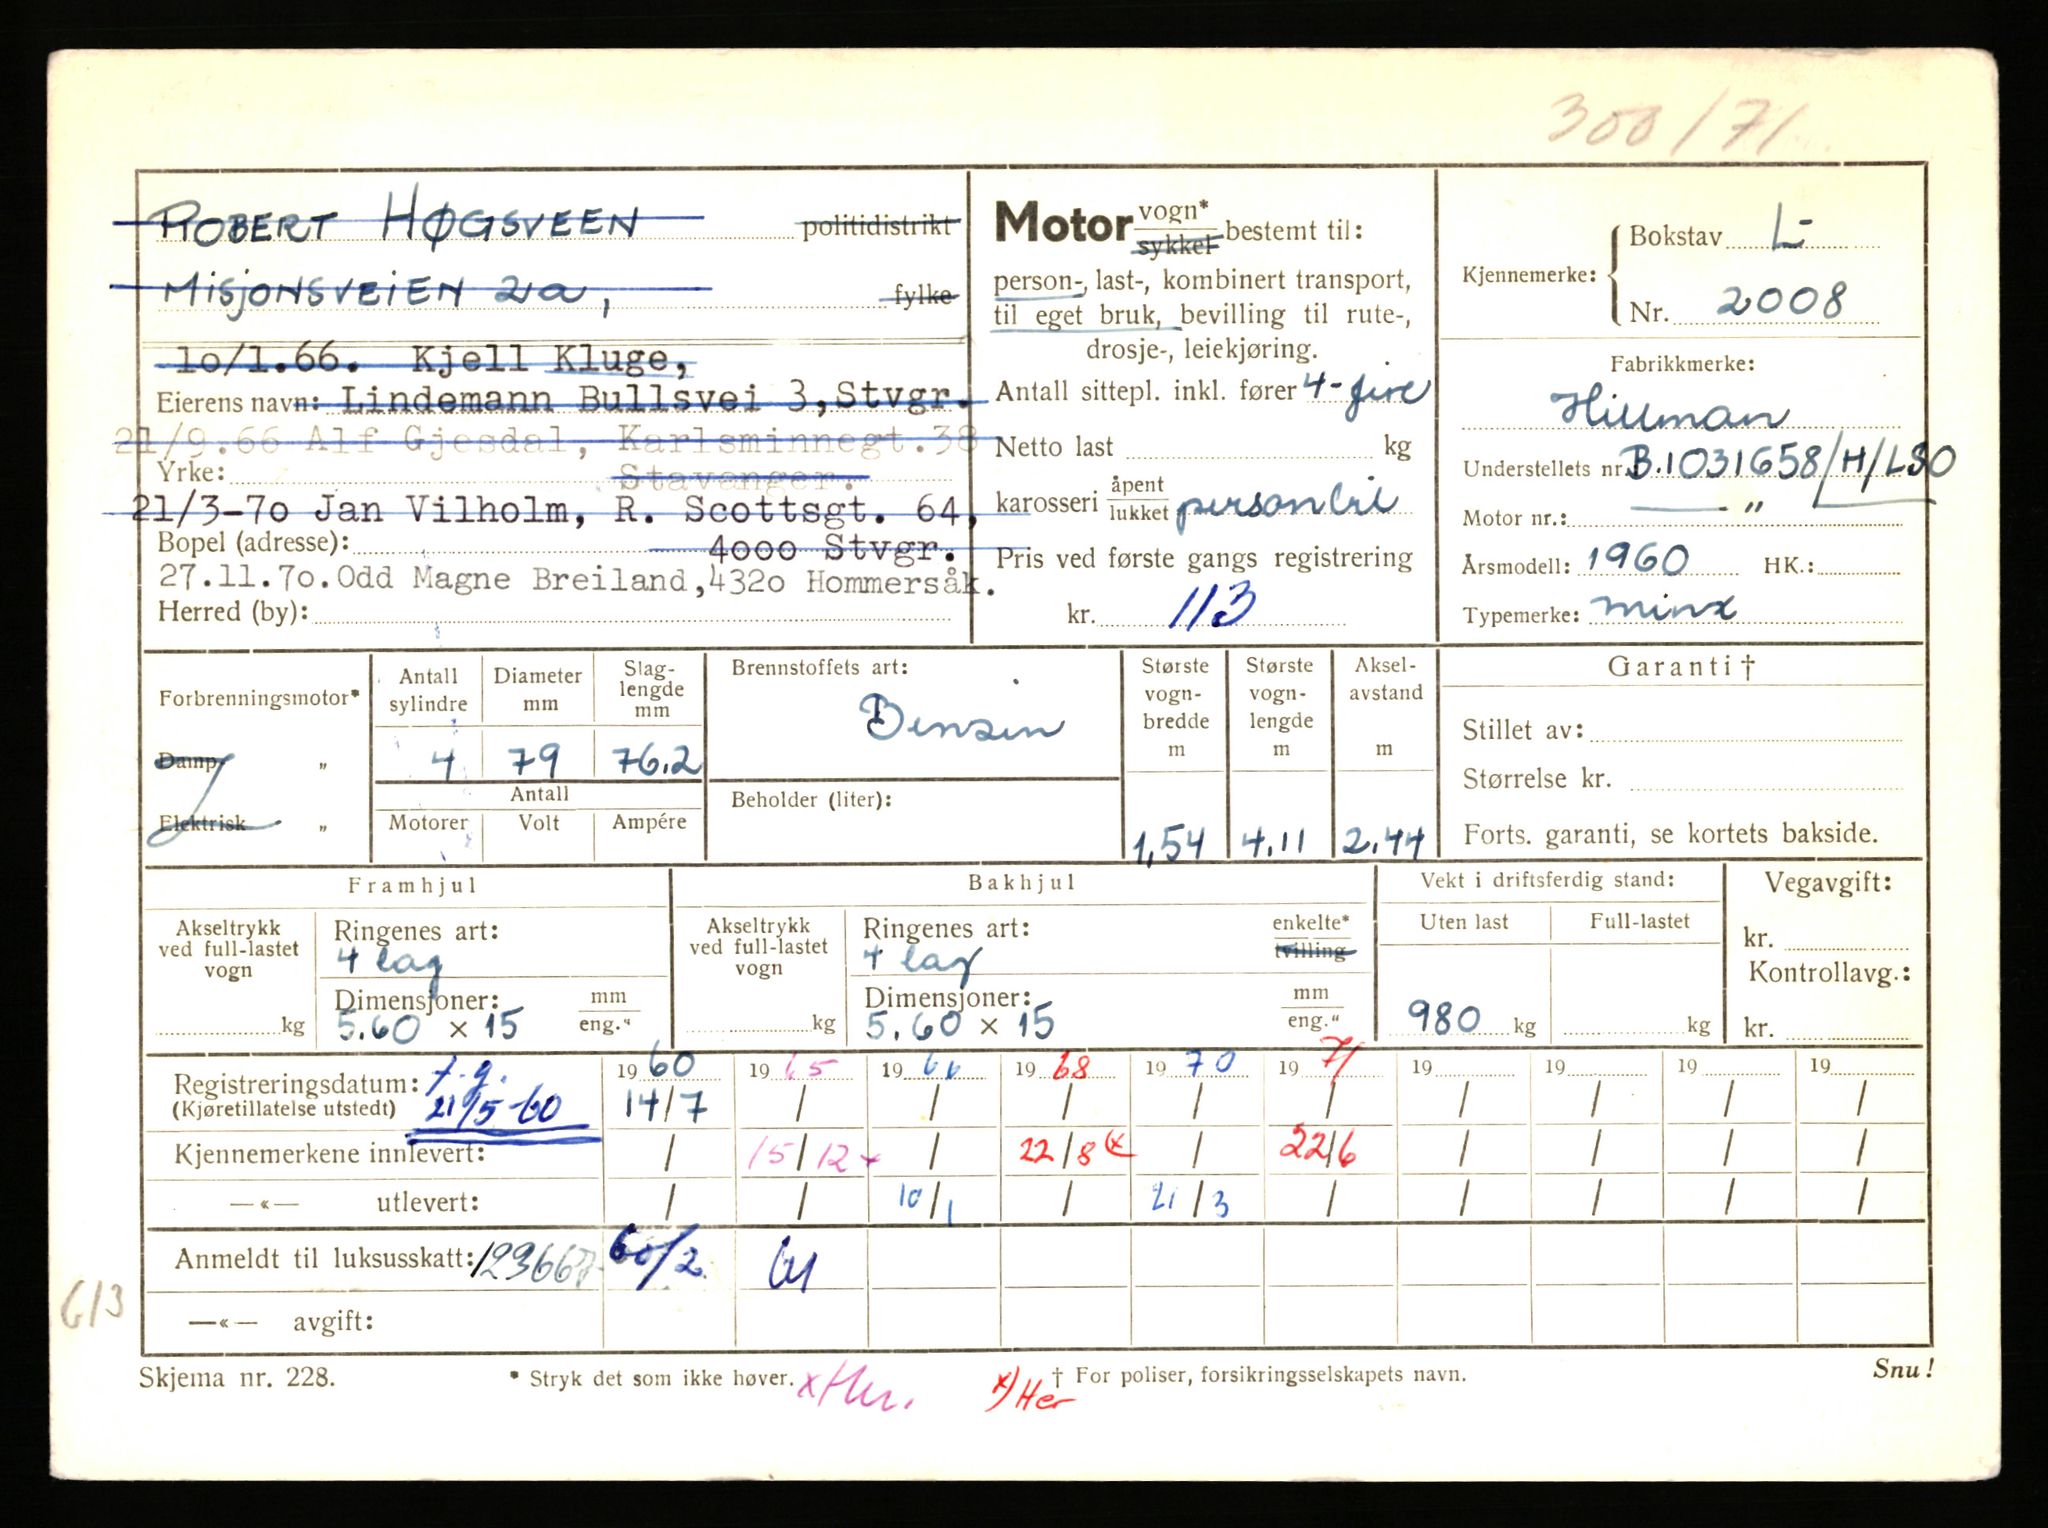 300/71
ROBERT HØGSVEEN politidistrikt
MISJONSVEIEN 2a, fylke
10/1.66. Kjell Kluge,
Eierens navn: Lindemann Bullsvei 3, Stvgr.
21/9.66 Alf Gjesdal, Karlsminnegt.38
Yrke: Stavanger.
21/3-70 Jan Vilholm, R. Scottsgt. 64,
Bopel (adresse): 4000 Stvgr.
27.11.70. Odd Magne Breiland, 4320 Hommersåk.
Herred (by):
Motor vogn* sykkel bestemt til:
person-, last-, kombinert transport,
til eget bruk, bevilling til rute-,
drosje-, leiekjøring.
Antall sittepl. inkl. fører 4-fire
Netto last kg
karosseri åpent lukket personbil
Pris ved første gangs registrering
kr. 113
Kjennemerke: Bokstav L-
Nr. 2008
Fabrikkmerke:
Hillman
Understellets nr. B.1031658/H/LSO
Motor nr.: — " —
Årsmodell: 1960 HK.:
Typemerke: minx
Forbrenningsmotor*
Damp "
Elektrisk "
Antall sylindre Diameter mm Slag-lengde mm
4 79 76.2
Antall
Motorer Volt Ampére
Brennstoffets art:
Bensin
Beholder (liter):
Største vogn-bredde m Største vogn-lengde m Aksel-avstand m
1,54 4.11 2.44
Garanti †
Stillet av:
Størrelse kr.
Forts. garanti, se kortets bakside.
Framhjul
Akseltrykk ved full-lastet vogn kg
Ringenes art:
4 lag
Dimensjoner: mm eng."
5.60 × 15
Bakhjul
Akseltrykk ved full-lastet vogn kg
Ringenes art: enkelte* tvilling
4 lag
Dimensjoner: mm eng."
5.60 × 15
Vekt i driftsferdig stand:
Uten last Full-lastet
980 kg kg
Vegavgift:
kr.
Kontrollavg.:
kr.
Registreringsdatum: f.g. 1960 1965 1966 1968 1970 1971 19 19 19 19
(Kjøretillatelse utstedt) 21/5-60 14/7 / / / / / / / / /
Kjennemerkene innlevert: / 15/12 x / 22/8 (x / 22/6 / / / /
—«— utlevert: / / 10/1 / 21/3 / / / / /
Anmeldt til luksusskatt: 123667 60/2 61
—«— avgift:
613
Skjema nr. 228. * Stryk det som ikke høver. x Her. x) Her † For poliser, forsikringsselskapets navn. Snu!